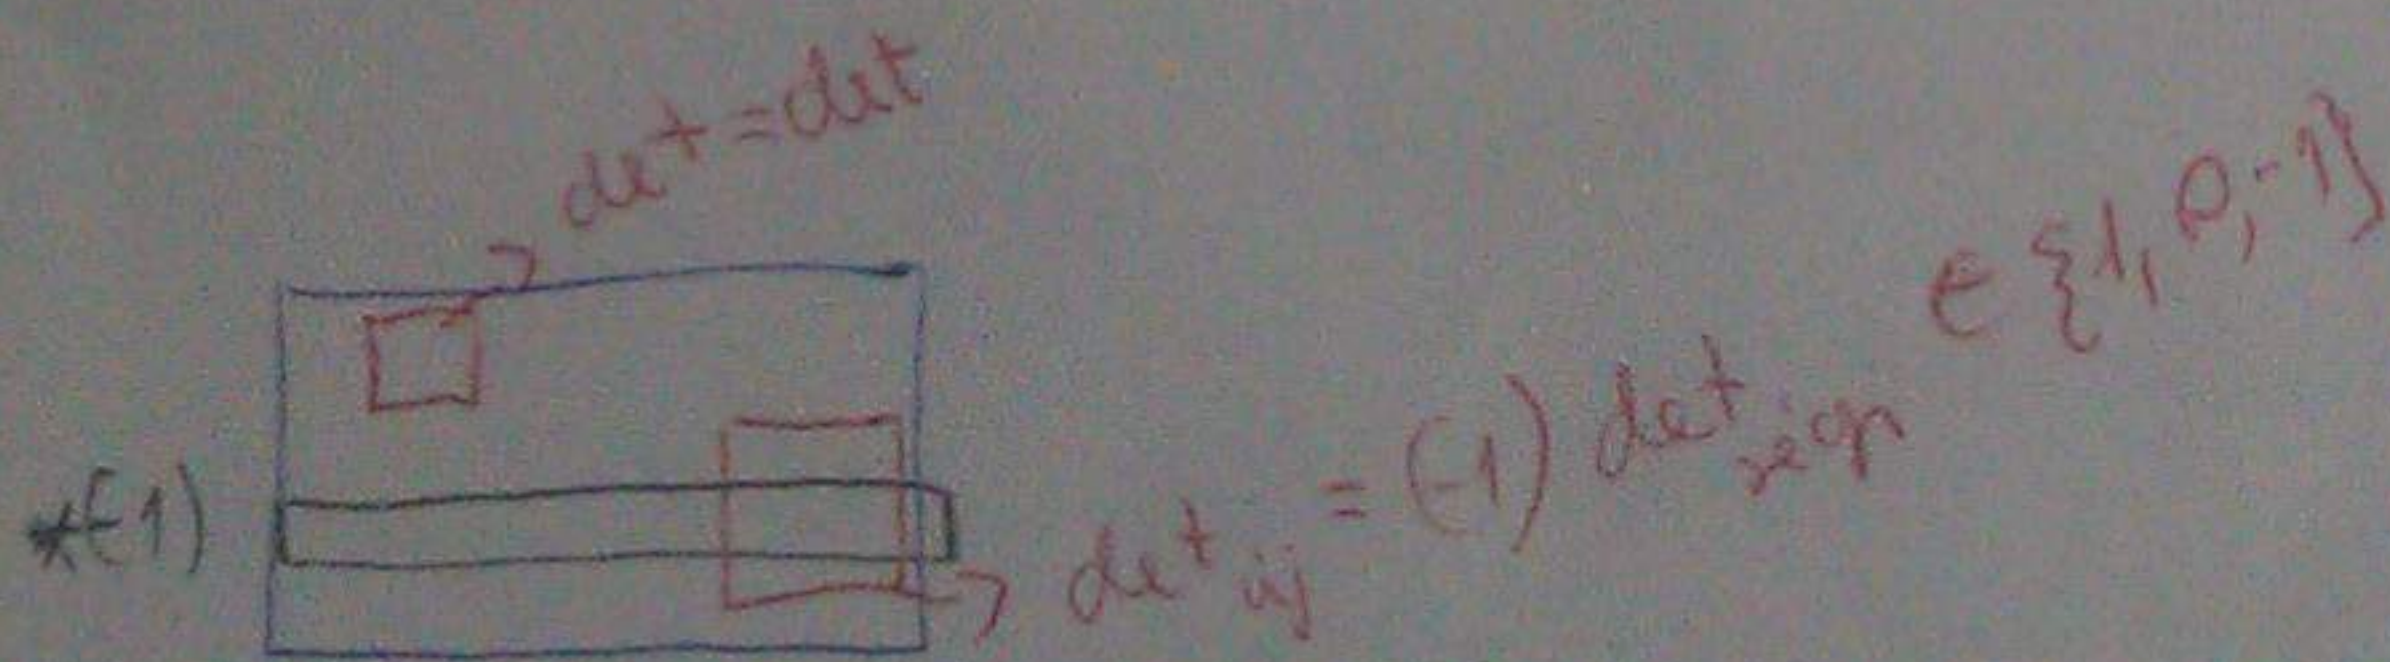 det = det
*(-1)
det ij = (-1) det ∈ {1, 0, -1}